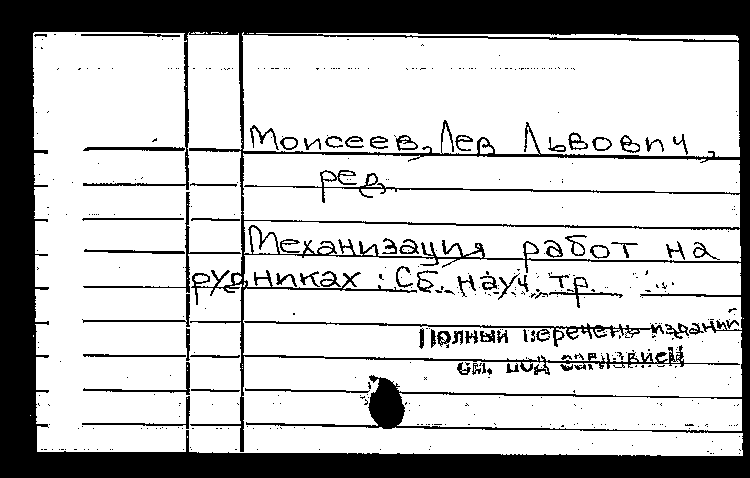 Моисеев, Лев Львович,
ред.
Механизация работ на
рудниках : Сб. науч. тр.
Полный перечень изданий
см. под заглавием